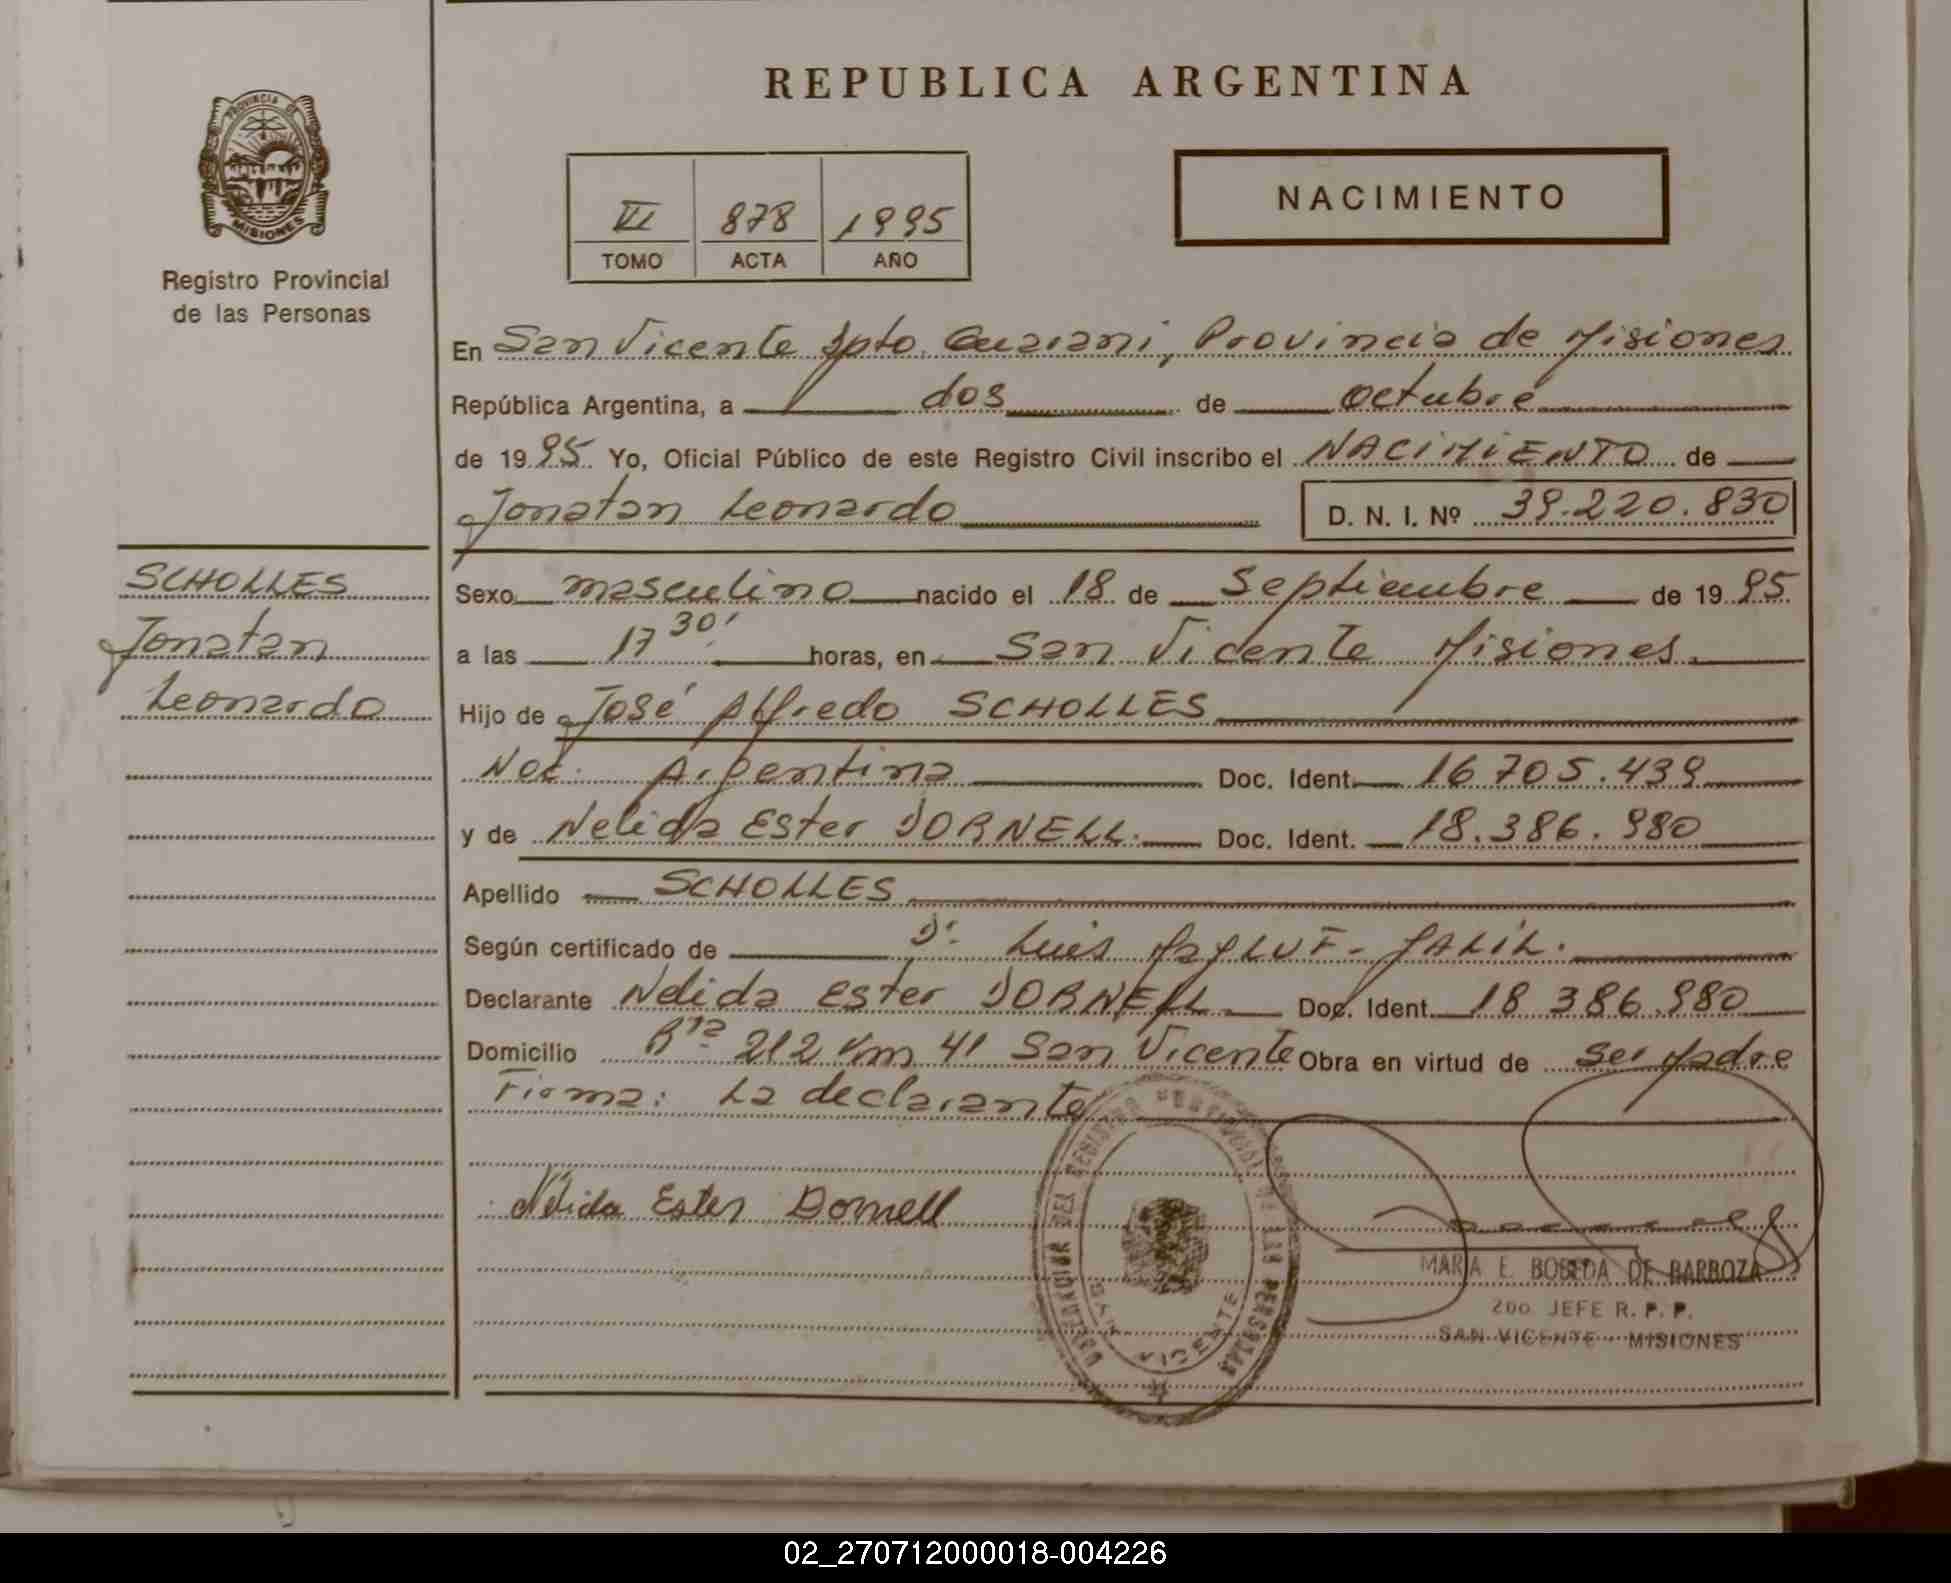 REPUBLICA ARGENTINA
PROVINCIA DE
MISIONES
Registro Provincial
de las Personas
VI 878 1995
TOMO ACTA AÑO
NACIMIENTO
En San Vicente Dpto. Guarani, Provincia de Misiones
República Argentina, a dos de octubre
de 1995 Yo, Oficial Público de este Registro Civil inscribo el NACIMIENTO de
Jonatan Leonardo D. N. I. Nº 39.220.830
SCHOLLES
Jonatan
Leonardo
Sexo masculino nacido el 18 de Septiembre de 1995
a las 17 30' horas, en San Vicente Misiones.
Hijo de José Alfredo SCHOLLES
Nac. Argentina Doc. Ident. 16.705.439
y de Nelida Ester DORNELL. Doc. Ident. 18.386.980
Apellido SCHOLLES
Según certificado de Dr. Luis JALIL.
Declarante Nelida Ester DORNELL Doc. Ident. 18 386.980
Domicilio Rta 212 Km 41 San Vicente Obra en virtud de ser Madre
Firma: La declarante
Nélida Ester Dornell
DELEGACION DEL REGISTRO PROVINCIAL DE LAS PERSONAS
SAN VICENTE
MARIA E. BOBEDA DE BARBOZA
2do. JEFE R. P. P.
SAN VICENTE - MISIONES
02_270712000018-004226